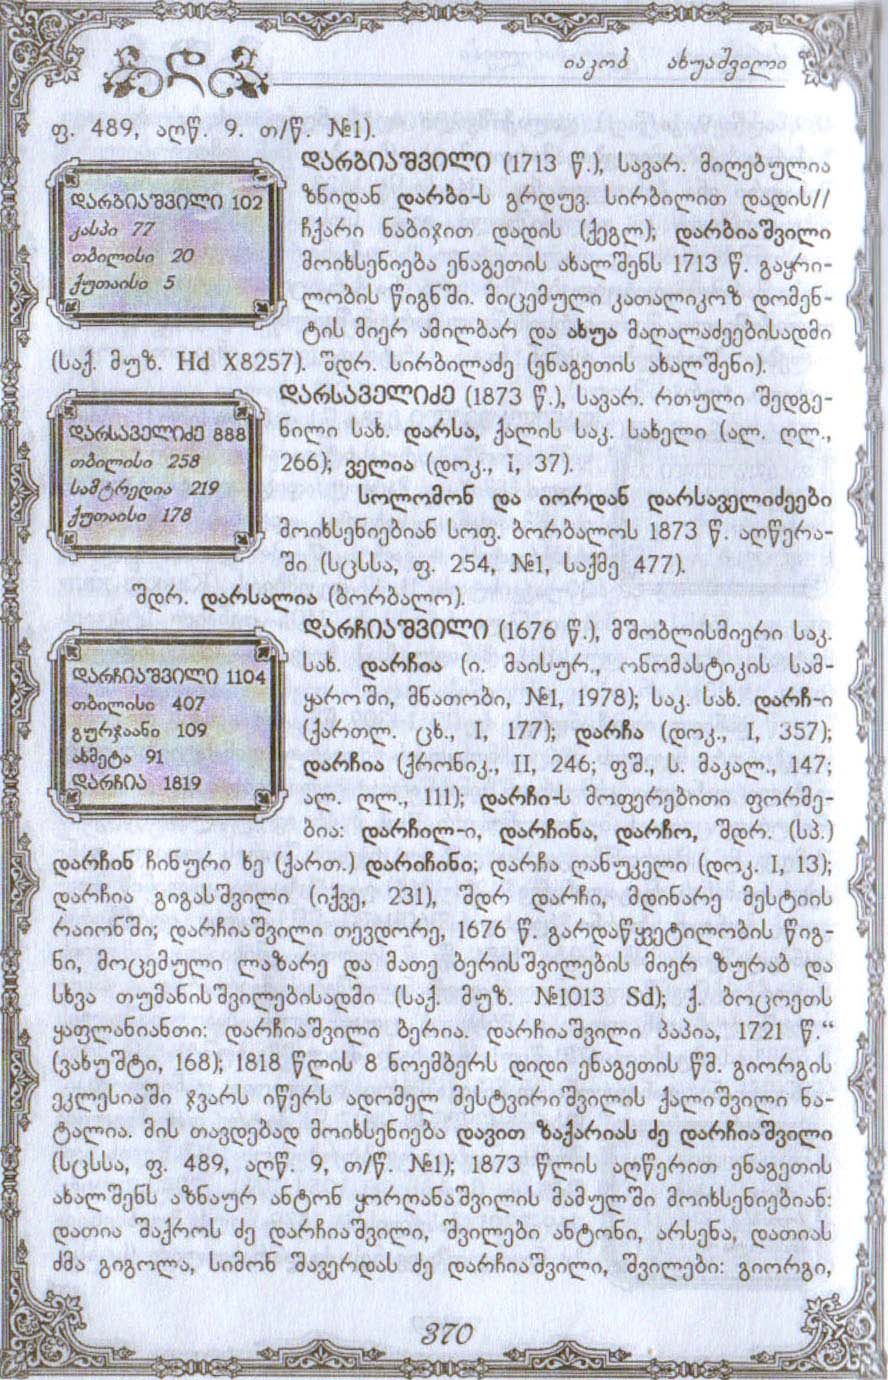 დ
იაკობ ახუაშვილი
ფ. 489, აღწ. 9. თ/წ. №1).
დარბიაშვილი 102
კასპი 77
თბილისი 20
ქუთაისი 5
დარბიაშვილი (1713 წ.), სავარ. მიღებულია
ზნიდან დარბი-ს გრდუვ. სირბილით დადის//
ჩქარი ნაბიჯით დადის (ქეგლ); დარბიაშვილი
მოიხსენიება ენაგეთის ახალშენს 1713 წ. გაყრი-
ლობის წიგნში. მიცემული კათალიკოზ დომენ-
ტის მიერ ამილბარ და ახუა მაღალაძეებისადმი
(საქ. მუზ. Hd X8257). შდრ. სირბილაძე (ენაგეთის ახალშენი).
დარსაველიძე 888
თბილისი 258
სამტრედია 219
ქუთაისი 178
დარსაველიძე (1873 წ.), სავარ. რთული შედგე-
ნილი სახ. დარსა, ქალის საკ. სახელი (ალ. ღლ.,
266); ველია (დოკ., I, 37).
სოლომონ და იორდან დარსაველიძეები
მოიხსენიებიან სოფ. ბორბალოს 1873 წ. აღწერა-
ში (სცსსა, ფ. 254, №1, საქმე 477).
შდრ. დარსალია (ბორბალო).
დარჩიაშვილი 1104
თბილისი 407
გურჯაანი 109
ახმეტა 91
დარჩია 1819
დარჩიაშვილი (1676 წ.), მშობლისმიერი საკ.
სახ. დარჩია (ი. მაისურ., ონომასტიკის სამ-
ყაროში, მნათობი, №1, 1978); საკ. სახ. დარჩ-ი
(ქართლ. ცხ., I, 177); დარჩა (დოკ., I, 357);
დარჩია (ქრონიკ., II, 246; ფშ., ს. მაკალ., 147;
ალ. ღლ., 111); დარჩი-ს მოფერებითი ფორმე-
ბია: დარჩილ-ი, დარჩინა, დარჩო, შდრ. (სპ.)
დარჩინ ჩინური ხე (ქართ.) დარიჩინი; დარჩა ღანუკელი (დოკ. I, 13);
დარჩია გიგასშვილი (იქვე, 231), შდრ დარჩი, მდინარე მესტიის
რაიონში; დარჩიაშვილი თევდორე, 1676 წ. გარდაწყვეტილობის წიგ-
ნი, მოცემული ლაზარე და მათე ბერისშვილების მიერ ზურაბ და
სხვა თუმანისშვილებისადმი (საქ. მუზ. №1013 Sd); ქ. ბოცოეთს
ყაფლანიანთი: დარჩიაშვილი ბერია. დარჩიაშვილი პაპია, 1721 წ.“
(ვახუშტი, 168); 1818 წლის 8 ნოემბერს დიდი ენაგეთის წმ. გიორგის
ეკლესიაში ჯვარს იწერს ადომელ მესტვირიშვილის ქალიშვილი ნა-
ტალია. მის თავდებად მოიხსენიება დავით ზაქარიას ძე დარჩიაშვილი
(სცსსა, ფ. 489, აღწ. 9, თ/წ. №1); 1873 წლის აღწერით ენაგეთის
ახალშენს აზნაურ ანტონ ყორღანაშვილის მამულში მოიხსენიებიან:
დათია შაქროს ძე დარჩიაშვილი, შვილები ანტონი, არსენა, დათიას
ძმა გიგოლა, სიმონ შავერდას ძე დარჩიაშვილი, შვილები: გიორგი,
370